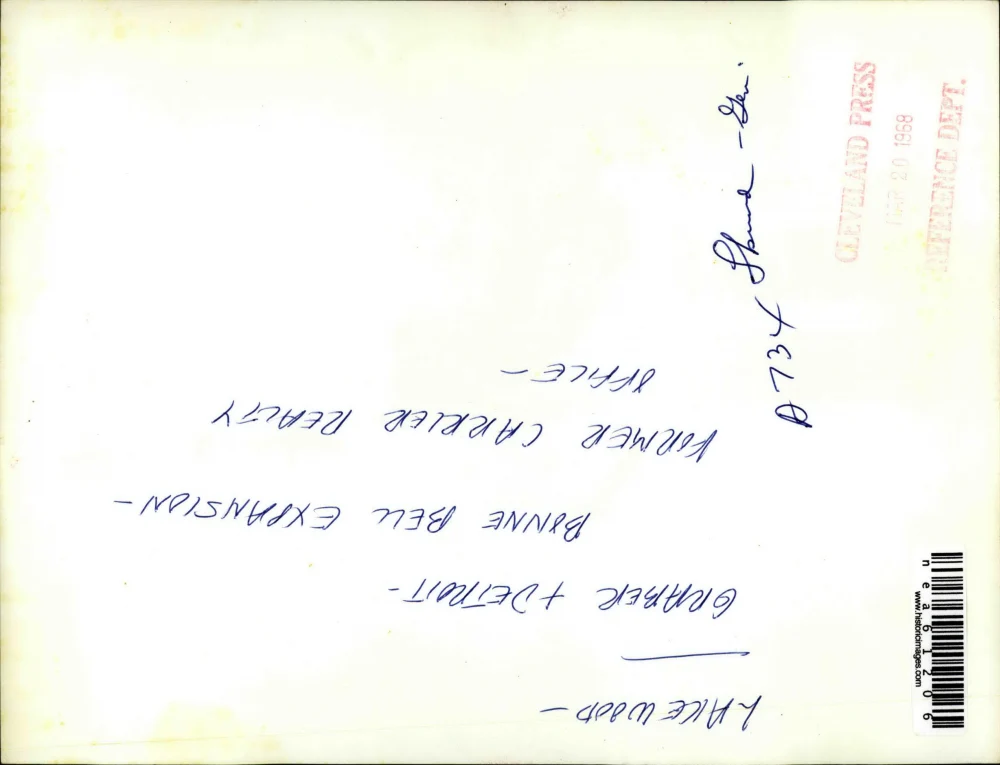 LAKEWOOD —
GRABER + DETROIT -
BONNE BELL EXPANSION -
FORMER CARRIER REALTY
OFFICE -
A734 - Gen.
CLEVELAND PRESS
MAR 20 1968
REFERENCE DEPT.
n e a 6 1 2 0 6
www.historicimages.com